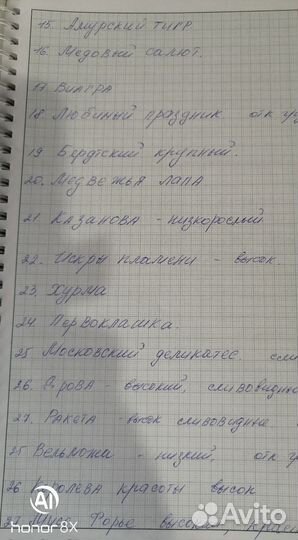 15. Амурский тигр
16. Медовый салют.
17 Виагра
18 Любимый праздник отк гру
19 Бердтский крупный.
20. Медвежья лапа
21 Казанова - низкорослый
22. Искры пламени - высок.
23. Хурма
24. Первоклашка.
25 Московский деликатес.
26. - высокий, сливовидные
27. Ракета - высок сливовидные
25 Вельможа - низкий, отк г
26 Королева красоты высок
27 Форье
AI
honor 8X
Avito